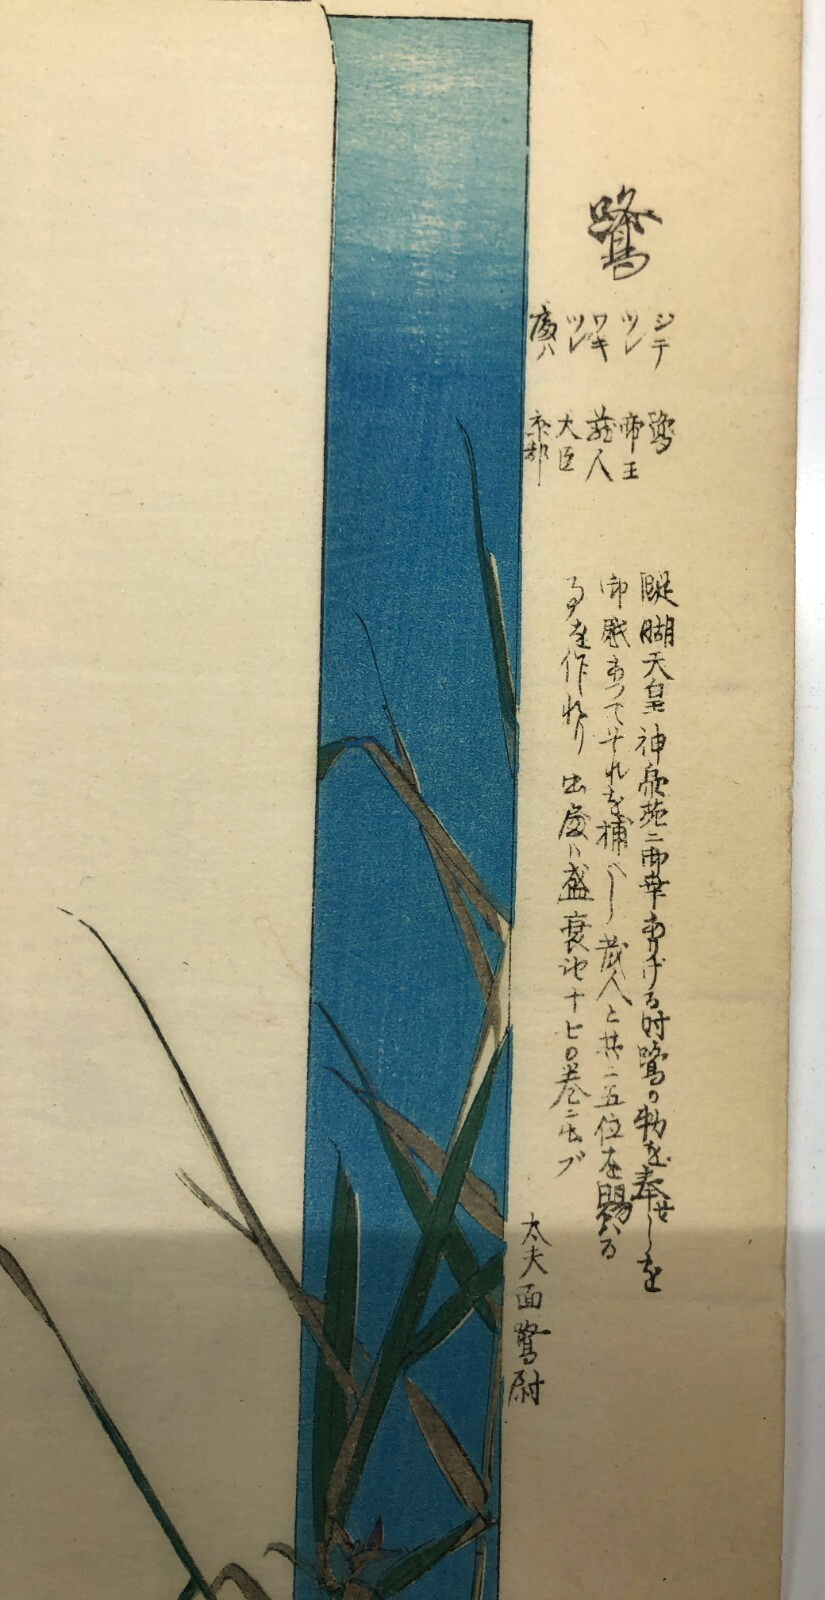 鷺
シテ 鷺
ツレ 帝王
ワキ 蔵人
ツレ 大臣
處ハ 京都
醍醐天皇神泉苑ニ御幸ありける時鷺の勅を奉せしを
御感あつてそれを捕へし蔵人と共ニ五位を賜はる
事を作れり 出處ハ盛衰記十七の巻ニ出ヅ
太夫面鷺尉